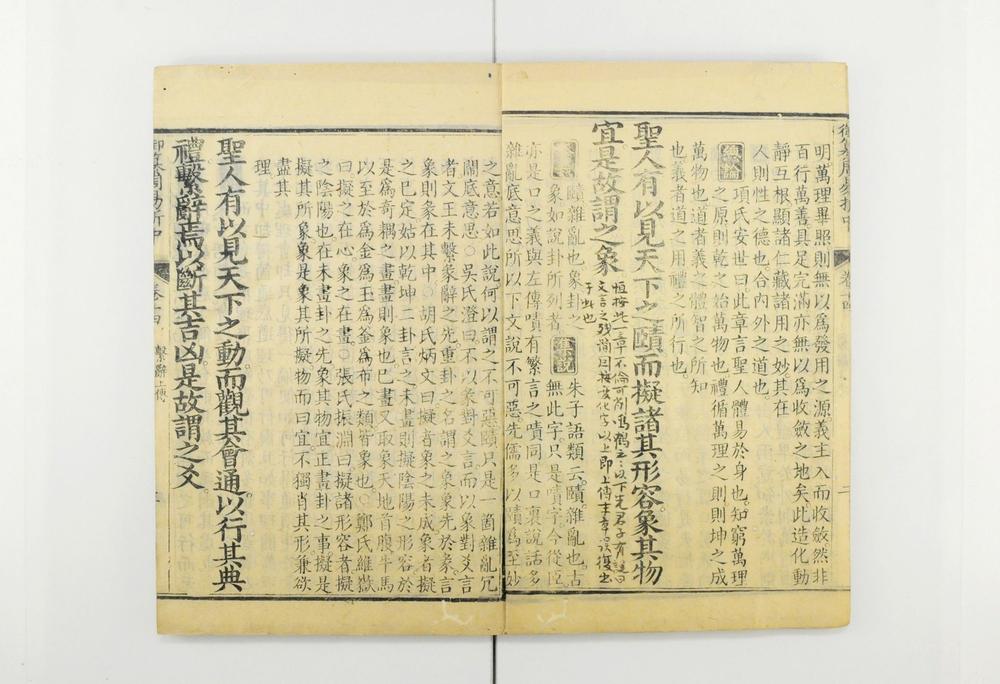 御纂周易折中
卷十四
明萬理畢照則無以爲發用之源義主入而收斂然非
百行萬善具足完滿亦無以爲收斂之地矣此造化動
靜互根顯諸仁藏諸用之妙其在
人則性之德也合內外之道也
項氏安世曰此章言聖人體易於身也知窮萬理
之原則乾之始萬物也禮循萬理之則則坤之成
萬物也道者義之體智之所知
也義者道之用禮之所行也
聖人有以見天下之賾而擬諸其形容象其物
宜是故謂之象
賾雜亂也象卦之
象如說卦所列者
朱子語類云賾雜亂也古
無此字只是嘖字今從𦣞
亦是口之義與左傳嘖有繁言之嘖同是口裏說話多
雜亂底意思所以下文說不可惡先儒多以賾爲至妙
之意若如此說何以謂之不可惡賾只是一箇雜亂冗
鬧底意思○吳氏澄曰不以彖對爻言而以象對爻言
者文王未繫彖辭之先重卦之名謂之象象先於彖言
象則彖在其中○胡氏炳文曰擬者象之未成象者擬
之已定姑以乾坤二卦言之未畫則擬陰陽之形容於
是爲奇耦之畫畫則象也已畫又取象天地首腹牛馬
以至於爲金爲玉爲釜爲布之類皆象也○鄭氏維嶽
曰擬之在心象之在畫○張氏振淵曰擬諸形容者擬
之陰陽也在未畫卦之先象其物宜正畫卦之事擬是
擬其所象象是象其所擬物而曰宜不獨肖其形兼欲
盡其
理
聖人有以見天下之動而觀其會通以行其典
禮繫辭焉以斷其吉凶是故謂之爻
御纂周易折中
卷十四 繫辭上傳